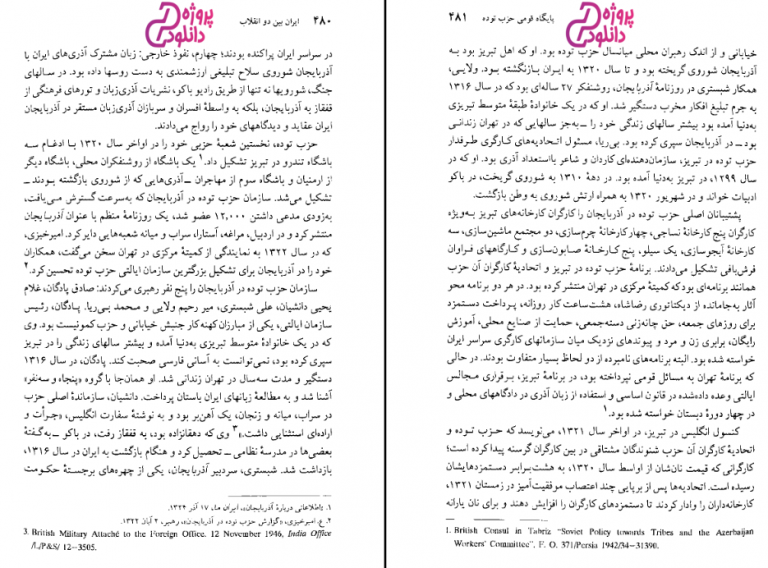 ۴۸۰ ایران بین دو انقلاب
پروژه
دانلود
در سراسر ایران پراکنده بودند؛ چهارم، نفوذ خارجی: زبان مشترک آذری‌های ایران با
آذربایجان شوروی سلاح تبلیغی ارزشمندی به دست روسها داده بود. در سالهای
جنگ، شورویها نه تنها از طریق رادیو باکو، نشریات آذری‌زبان و تورهای فرهنگی از
قفقاز به آذربایجان، بلکه به واسطهٔ افسران و سربازان آذری‌زبان مستقر در آذربایجان
ایران عقاید و دیدگاههای خود را رواج می‌دادند.
حزب توده، نخستین شعبهٔ حزبی خود را در اواخر سال ۱۳۲۰ با ادغام سه
باشگاه تندرو در تبریز تشکیل داد.۱ یک باشگاه از روشنفکران محلی، باشگاه دیگر
از ارمنیان و باشگاه سوم از مهاجران ــ آذری‌هایی که از شوروی بازگشته بودند ــ
تشکیل می‌شد. سازمان حزب توده در آذربایجان که به‌سرعت گسترش می‌یافت،
به‌زودی مدعی داشتن ۱۲,۰۰۰ عضو شد، یک روزنامهٔ منظم با عنوان آذربایجان
منتشر کرد و در اردبیل، مراغه، آستارا، سراب و میانه شعبه‌هایی دایر کرد. امیرخیزی،
که در سال ۱۳۲۲ به نمایندگی از کمیتهٔ مرکزی در تهران سخن می‌گفت، همکاران
خود را در آذربایجان برای تشکیل بزرگترین سازمان ایالتی حزب توده تحسین کرد.۲
سازمان حزب توده در آذربایجان را پنج نفر رهبری می‌کردند: صادق پادگان، غلام
یحیی دانشیان، علی شبستری، میر رحیم ولایی و محمد بی‌ریا. پادگان، رئیس
سازمان ایالتی، یکی از مبارزان کهنه‌کار جنبش خیابانی و حزب کمونیست بود. وی
که در یک خانوادهٔ متوسط تبریزی به‌دنیا آمده و بیشتر سالهای زندگی را در تبریز
سپری کرده بود، نمی‌توانست به آسانی فارسی صحبت کند. پادگان، در سال ۱۳۱۶
دستگیر و مدت سه‌سال در تهران زندانی شد. او همان‌جا با گروه «پنجاه و سه‌نفر»
آشنا شد و به مطالعهٔ زبانهای ایران باستان پرداخت. دانشیان، سازماندهٔ اصلی حزب
در سراب، میانه و زنجان، یک آهن‌بر بود و به نوشتهٔ سفارت انگلیس، «جرأت و
اراده‌ای استثنایی داشت.»۳ وی که دهقانزاده بود، به قفقاز رفت، در باکو ــ به‌گفتهٔ
بعضی‌ها در مدرسهٔ نظامی ــ تحصیل کرد و هنگام بازگشت به ایران در سال ۱۳۱۶،
بازداشت شد. شبستری، سردبیر آذربایجان، یکی از چهره‌های برجستهٔ حکومت
۱. «اطلاعاتی دربارهٔ آذربایجان»، ایران ما، ۱۷ آذر ۱۳۲۴.
۲. ع. امیرخیزی، «گزارش حزب توده در آذربایجان»، رهبر، ۲ آبان ۱۳۲۲.
3. British Military Attaché to the Foreign Office. 12 November 1946, India Office
/L/P&S/ 12–3505.
پایگاه قومی حزب توده ۴۸۱
پروژه
دانلود
خیابانی و از اندک رهبران محلی میانسال حزب توده بود. او که اهل تبریز بود به
آذربایجان شوروی گریخته بود و تا سال ۱۳۲۰ به ایران بازنگشته بود. ولایی،
همکار شبستری در روزنامهٔ آذربایجان، روشنفکر ۲۷ ساله‌ای بود که در سال ۱۳۱۶
به جرم تبلیغ افکار مخرب دستگیر شد. او که در یک خانوادهٔ طبقهٔ متوسط تبریزی
به‌دنیا آمده بود بیشتر سالهای زندگی خود را ــ به‌جز سالهایی که در تهران زندانی
بود ــ در آذربایجان سپری کرده بود. بی‌ریا، مسئول اتحادیه‌های کارگری طرفدار
حزب توده در تبریز، سازمان‌دهنده‌ای کاردان و شاعر بااستعداد آذری بود. او که در
سال ۱۲۹۹، در تبریز به‌دنیا آمده بود. در دههٔ ۱۳۱۰ به شوروی گریخت، در باکو
ادبیات خواند و در شهریور ۱۳۲۰ به همراه ارتش شوروی به وطن بازگشت.
پشتیبانان اصلی حزب توده در آذربایجان را کارگران کارخانه‌های تبریز به‌ویژه
کارگران پنج کارخانهٔ نساجی، چهار کارخانهٔ چرم‌سازی، دو مجتمع ماشین‌سازی، سه
کارخانهٔ آبجوسازی، یک سیلو، پنج کارخانهٔ صابون‌سازی و کارگاههای فراوان
فرش‌بافی تشکیل می‌دادند. برنامهٔ حزب توده در تبریز و اتحادیهٔ کارگران آن حزب
همانند برنامه‌ای بود که کمیتهٔ مرکزی در تهران منتشر کرده بود. در هر دو برنامه محو
آثار به‌جامانده از دیکتاتوری رضاشاه، هشت‌ساعت کار روزانه، پرداخت دستمزد
برای روزهای جمعه، حق چانه‌زنی دسته‌جمعی، حمایت از صنایع محلی، آموزش
رایگان، برابری زن و مرد و پیوندهای نزدیک میان سازمانهای کارگری سراسر ایران
خواسته شده بود. البته برنامه‌های نامبرده از دو لحاظ بسیار متفاوت بودند. در حالی
که برنامهٔ تهران به مسائل قومی نپرداخته بود، در برنامهٔ تبریز، برقراری مجالس
ایالتی وعده داده‌شده در قانون اساسی و استفاده از زبان آذری در دادگاههای محلی و
در چهار دورهٔ دبستان خواسته شده بود.۱
کنسول انگلیس در تبریز، در اواخر سال ۱۳۲۱، می‌نویسد که حزب توده و
اتحادیهٔ کارگران آن حزب شنوندگان مشتاقی در بین کارگران گرسنه پیدا کرده است؛
کارگرانی که قیمت نان‌شان از اواسط سال ۱۳۲۰، به هشت‌برابر دستمزدهایشان
رسیده است. اتحادیه‌ها پس از برپایی چند اعتصاب موفقیت‌آمیز در زمستان ۱۳۲۱،
کارخانه‌داران را وادار کردند تا دستمزدهای کارگران را افزایش دهند و برای نان یارانه
1. British Consul in Tabriz "Soviet Policy towards Tribes and the Azerbaijan
Workers' Committee". F. O. 371/Persia 1942/34–31390.